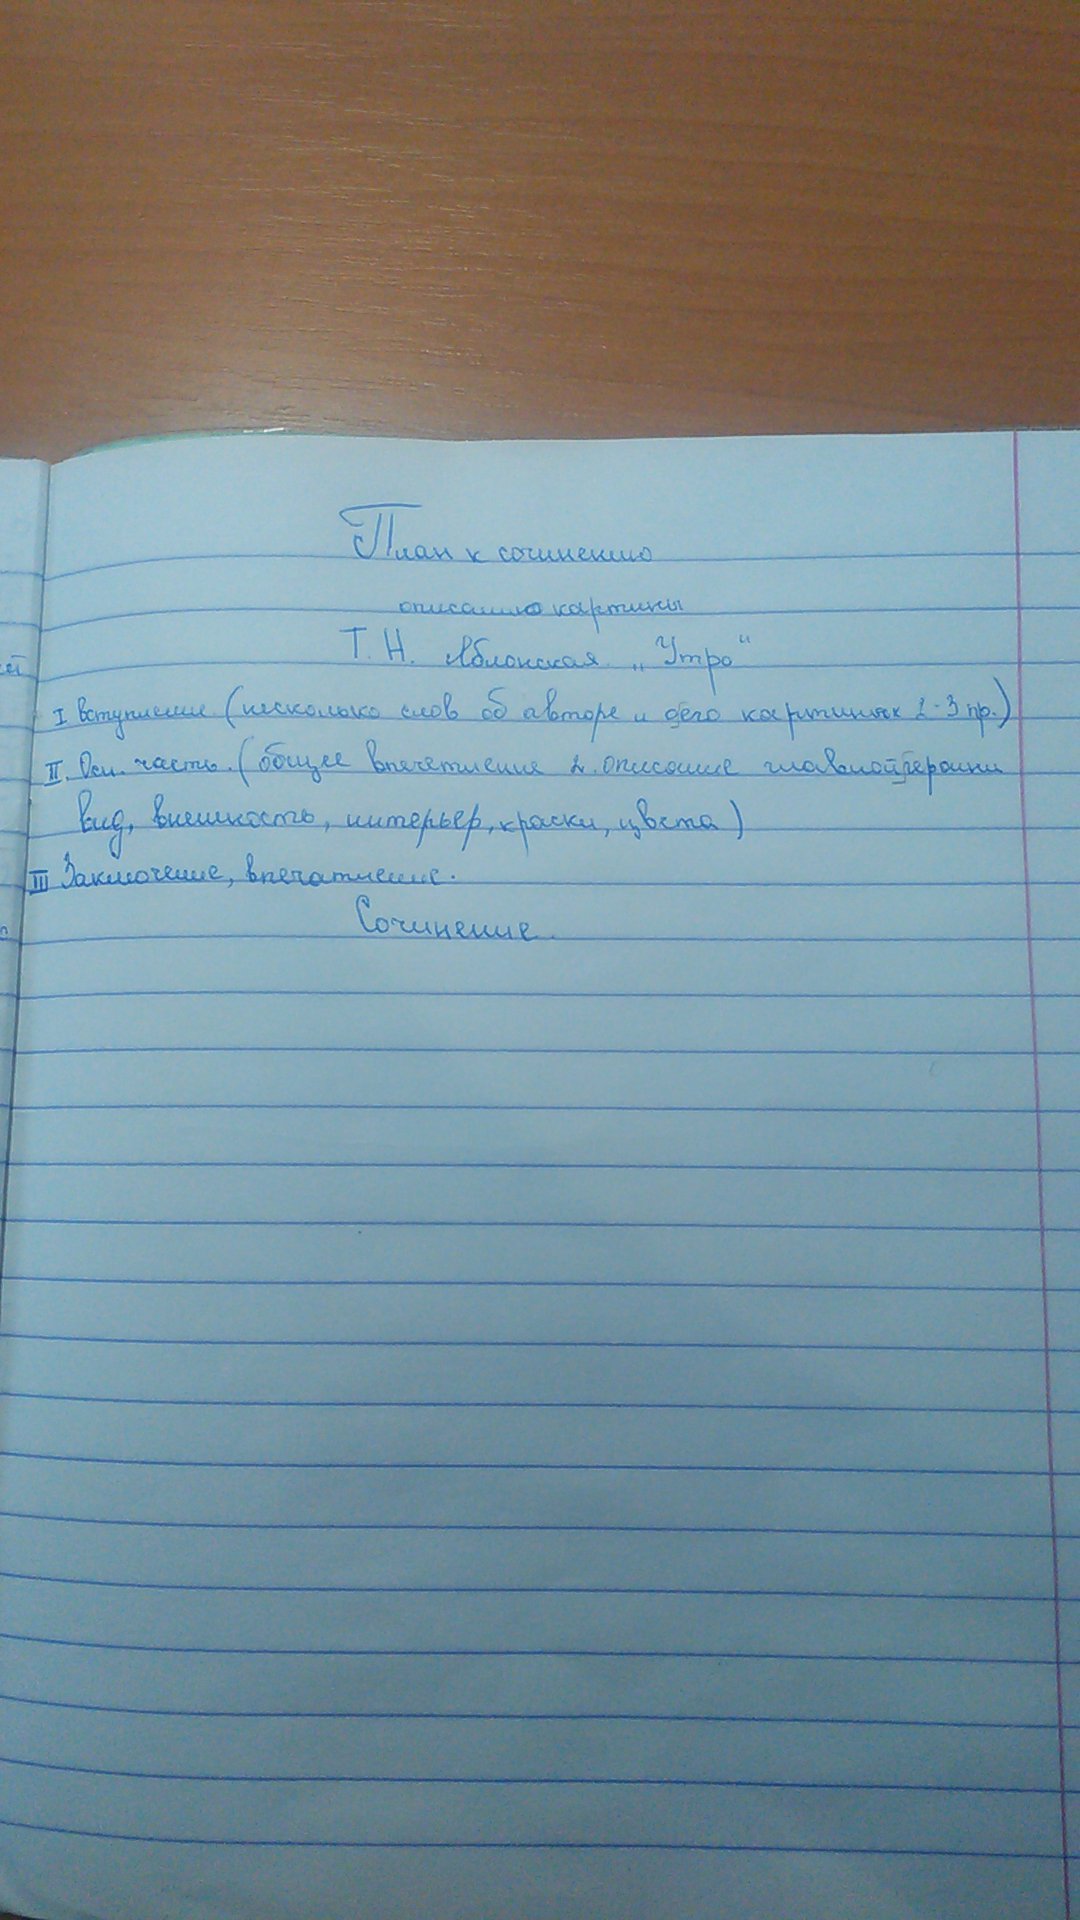 План к сочинению
описанию картины
Т. Н. Яблонская „Утро“
I Вступление (несколько слов об авторе и его картинах 2-3 пр.)
II. Осн. часть. (общее впечетление 2. описание главной героини
вид, внешность, интерьер, краски, цвета)
III Заключение, впечатление.
Сочинение.